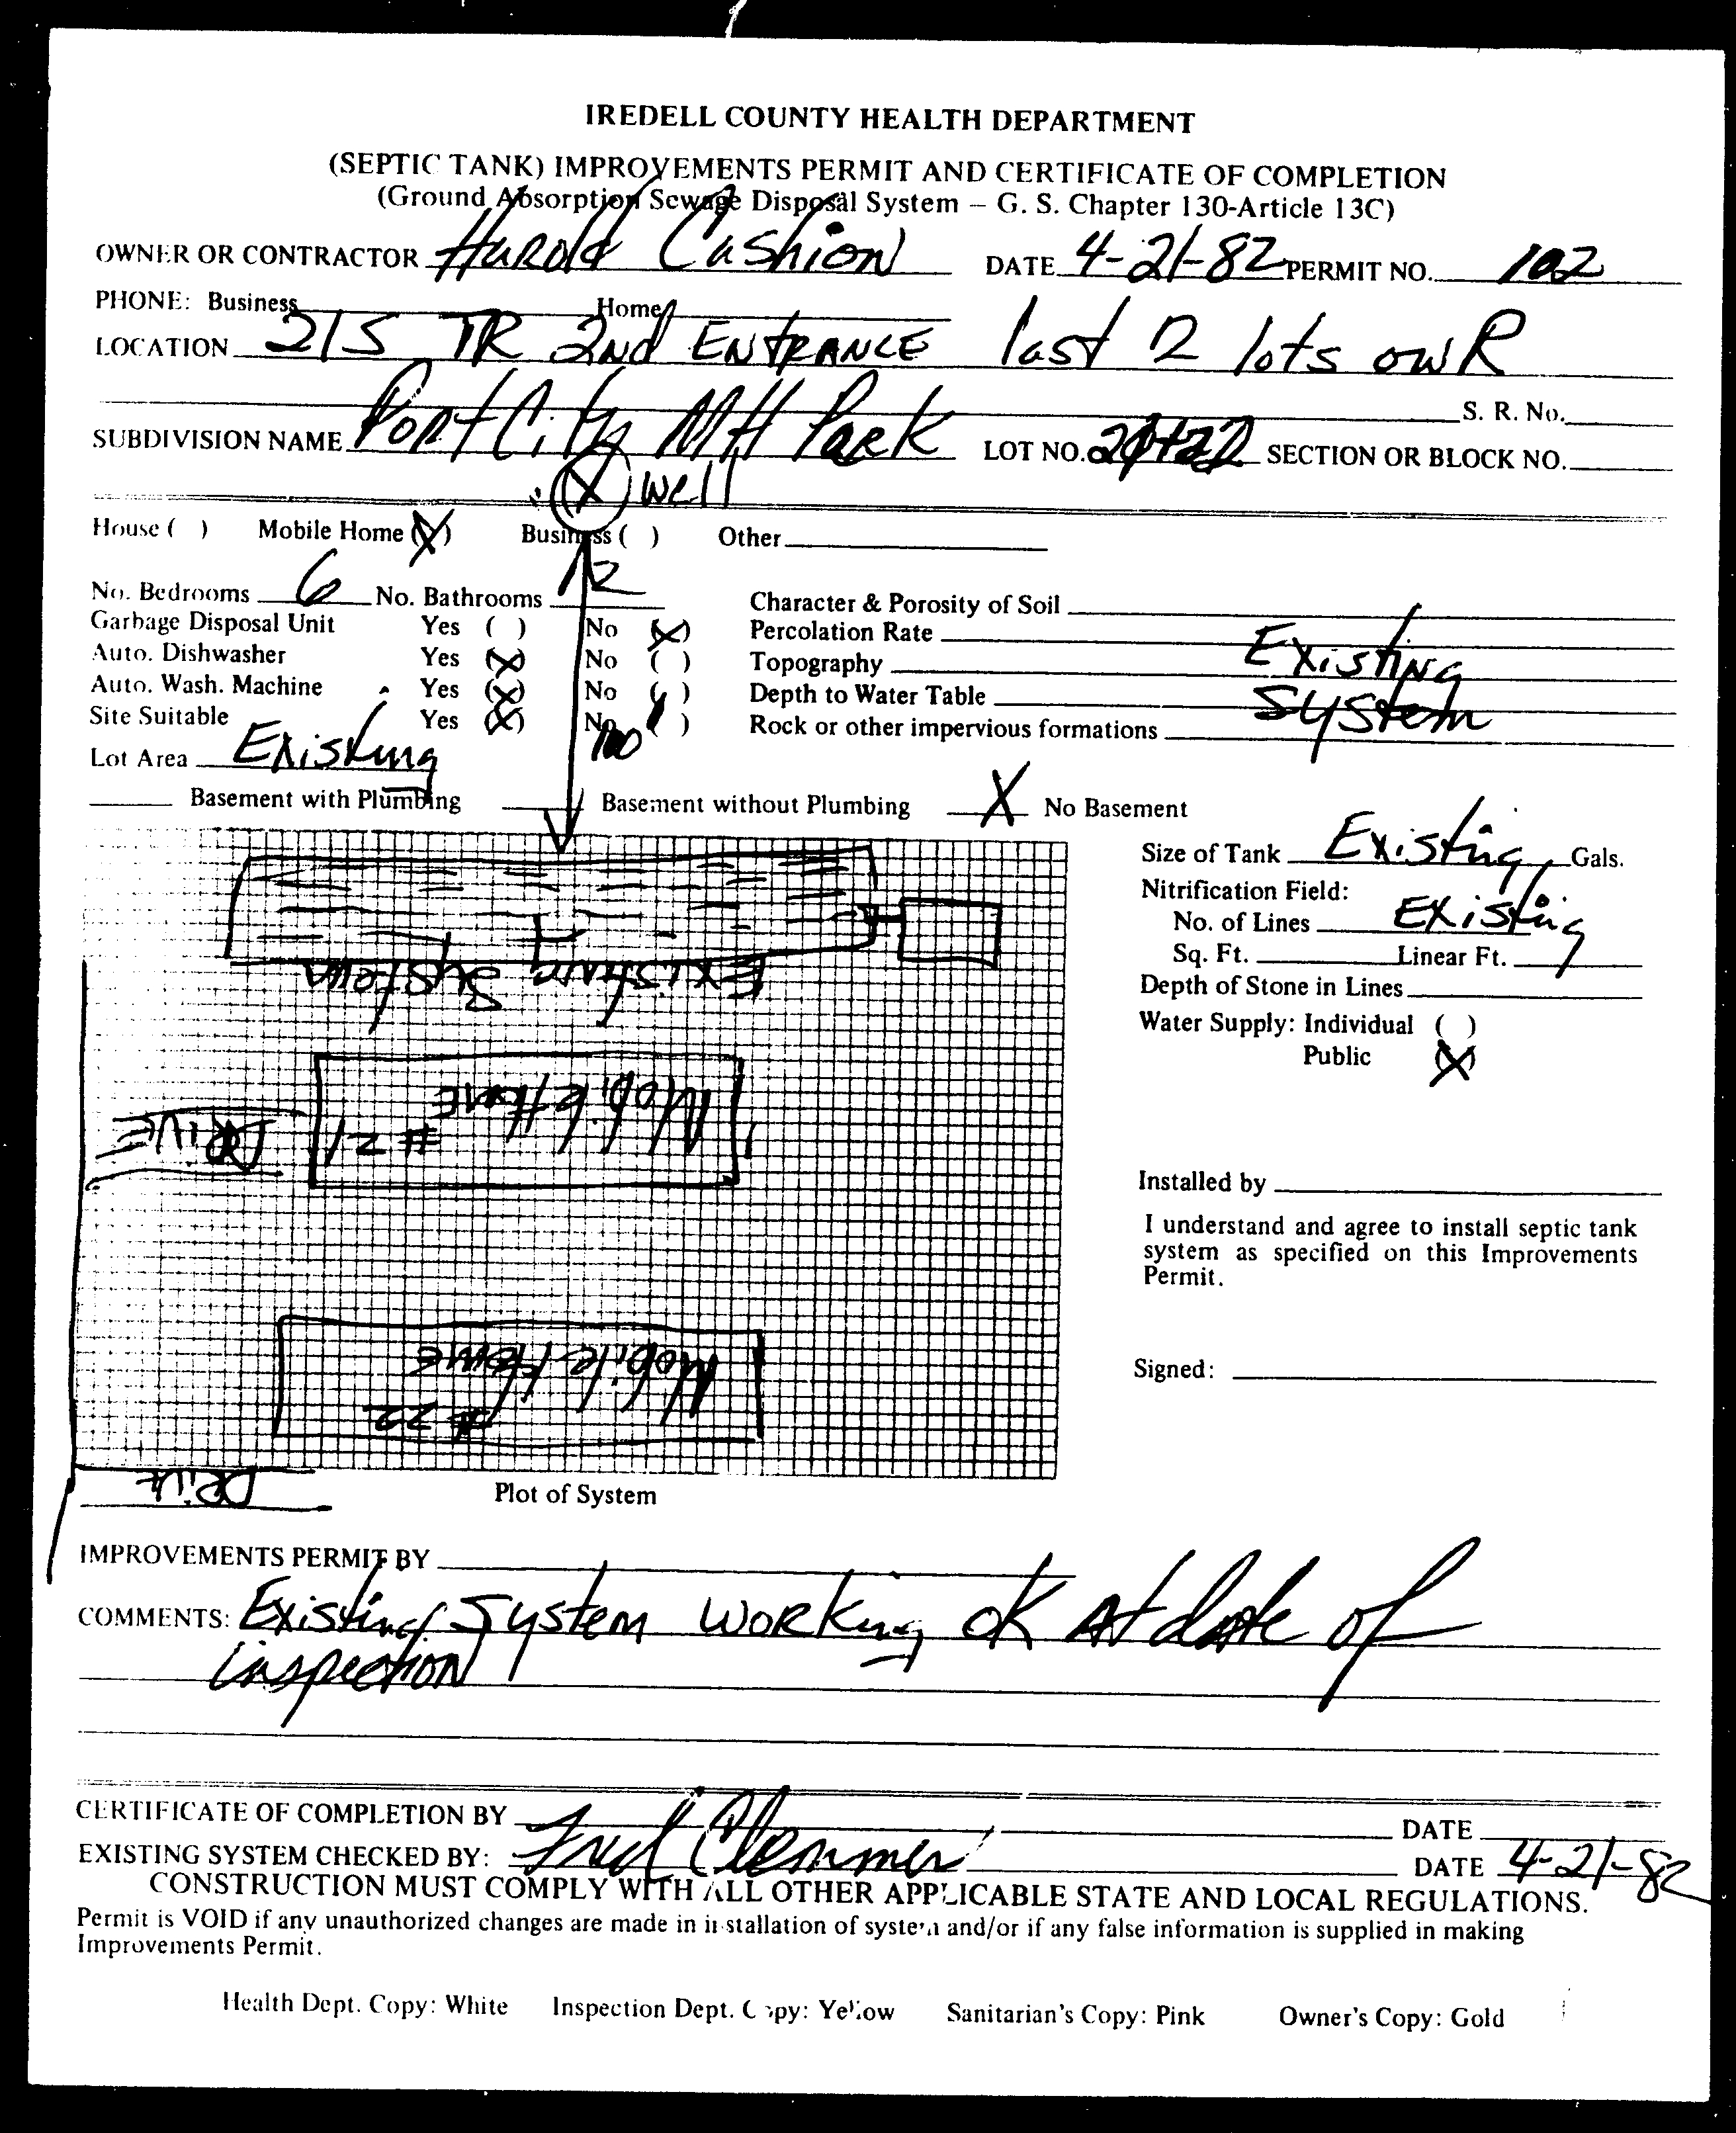 IREDELL COUNTY HEALTH DEPARTMENT
(SEPTIC TANK) IMPROVEMENTS PERMIT AND CERTIFICATE OF COMPLETION
(Ground Absorption Sewage Disposal System – G. S. Chapter 130-Article 13C)
OWNER OR CONTRACTOR Harold Cashion DATE 4-21-82 PERMIT NO. 102
PHONE: Business Home
LOCATION 21S TR 2nd ENTRANCE last 2 lots on R
S. R. No.
SUBDIVISION NAME Port City MH Park LOT NO. 21+22 SECTION OR BLOCK NO.
X well
House ( ) Mobile Home (X) Business ( ) Other
No. Bedrooms 6 No. Bathrooms 2 Character & Porosity of Soil
Garbage Disposal Unit Yes ( ) No (X) Percolation Rate
Auto. Dishwasher Yes (X) No ( ) Topography Existing
Auto. Wash. Machine Yes (X) No ( ) Depth to Water Table System
Site Suitable Yes (X) No ( ) Rock or other impervious formations
100
Lot Area Existing
Basement with Plumbing Basement without Plumbing X No Basement
Size of Tank Existing Gals.
Nitrification Field:
No. of Lines Existing
Sq. Ft. Linear Ft.
Depth of Stone in Lines
Water Supply: Individual ( )
Public (X)
Existing System
Mobile Home
# 21
DRIVE
Installed by
I understand and agree to install septic tank
system as specified on this Improvements
Permit.
Mobile Home
# 22
Signed:
DRIVE
Plot of System
IMPROVEMENTS PERMIT BY
COMMENTS: Existing System working OK At date of
inspection
CERTIFICATE OF COMPLETION BY DATE
EXISTING SYSTEM CHECKED BY: Fred Clemmer DATE 4-21-82
CONSTRUCTION MUST COMPLY WITH ALL OTHER APPLICABLE STATE AND LOCAL REGULATIONS.
Permit is VOID if any unauthorized changes are made in installation of system and/or if any false information is supplied in making
Improvements Permit.
Health Dept. Copy: White Inspection Dept. Copy: Yellow Sanitarian's Copy: Pink Owner's Copy: Gold